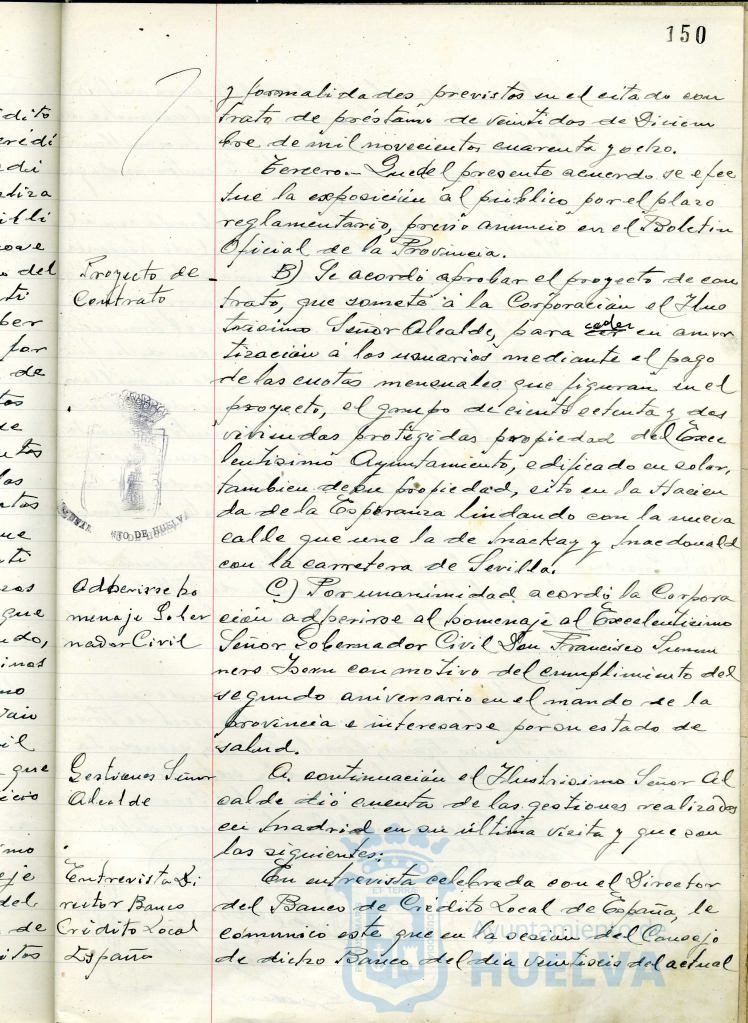 150
y formalidades previstos en el citado con
trato de préstamo de veintidos de Diciem
bre de mil novecientos cuarenta y ocho.
Tercero.- Que del presente acuerdo se efec
tue la exposición al publico por el plazo
reglamentario, previo anuncio en el Boletin
Oficial de la Provincia.
Proyecto de
Contrato
B) Se acordó aprobar el proyecto de con
trato, que somete á la Corporación el Ilus
trisimo Señor Alcalde, para ceder en amor
tización á los usuarios mediante el pago
de las cuotas mensuales que figuran en el
proyecto, el grupo de ciento setenta y dos
viviendas protegidas propiedad del Exce
lentisimo Ayuntamiento, edificado en solar,
tambien de su propiedad, sito en la Hacien
da de la Esperanza lindando con la nueva
calle que une la de Mackay y Macdonald
con la carretera de Sevilla.
Adherirse ho
menaje Gober
nador Civil
C) Por unanimidad acordó la Corpora
ción adherirse al homenaje al Excelentisimo
Señor Gobernador Civil Don Francisco Summ
ners Isern con motivo del cumplimiento del
segundo aniversario en el mando de la
provincia e interesarse por su estado de
salud.
Gestiones Señor
Alcalde
A continuación el Ilustrisimo Señor Al
calde dió cuenta de las gestiones realizadas
en Madrid en su última visita y que son
las siguientes:
Entrevista Di
rector Banco
Crédito Local
España
En entrevista celebrada con el Director
del Banco de Crédito Local de España, le
comunicó este que en la sesion del Consejo
de dicho Banco del dia veintiseis del actual
TO DE HUELVA
Ayuntamiento de
HUELVA